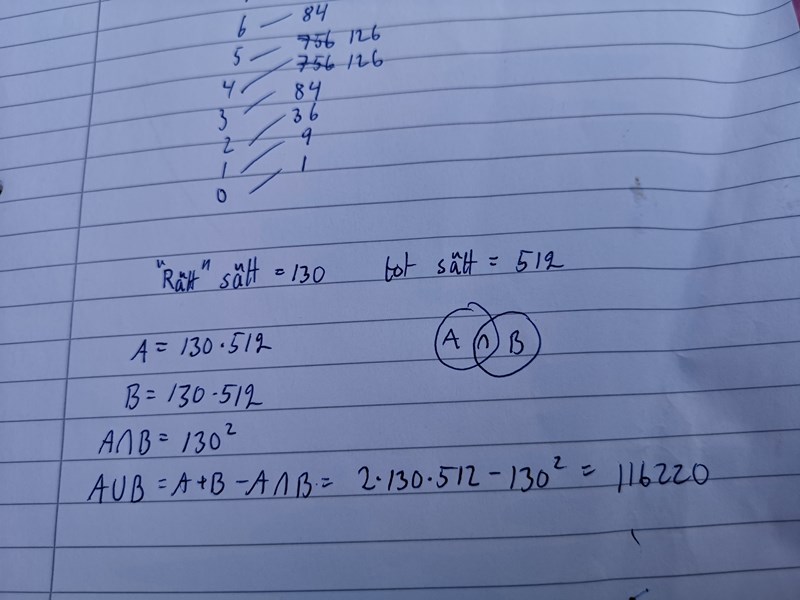 6 — 84
5 — 756 126
4 — 756 126
3 — 84
2 — 36
1 — 9
0 — 1
"Rätt" sätt = 130 tot sätt = 512
A = 130·512 A ∩ B
B = 130·512
A∩B = 130²
A∪B = A+B-A∩B = 2·130·512 - 130² = 116220